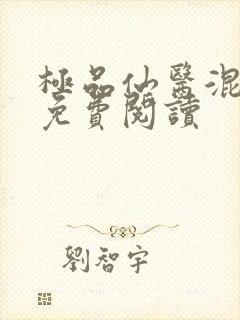 極品仙醫混
免費閱讀
劉智宇